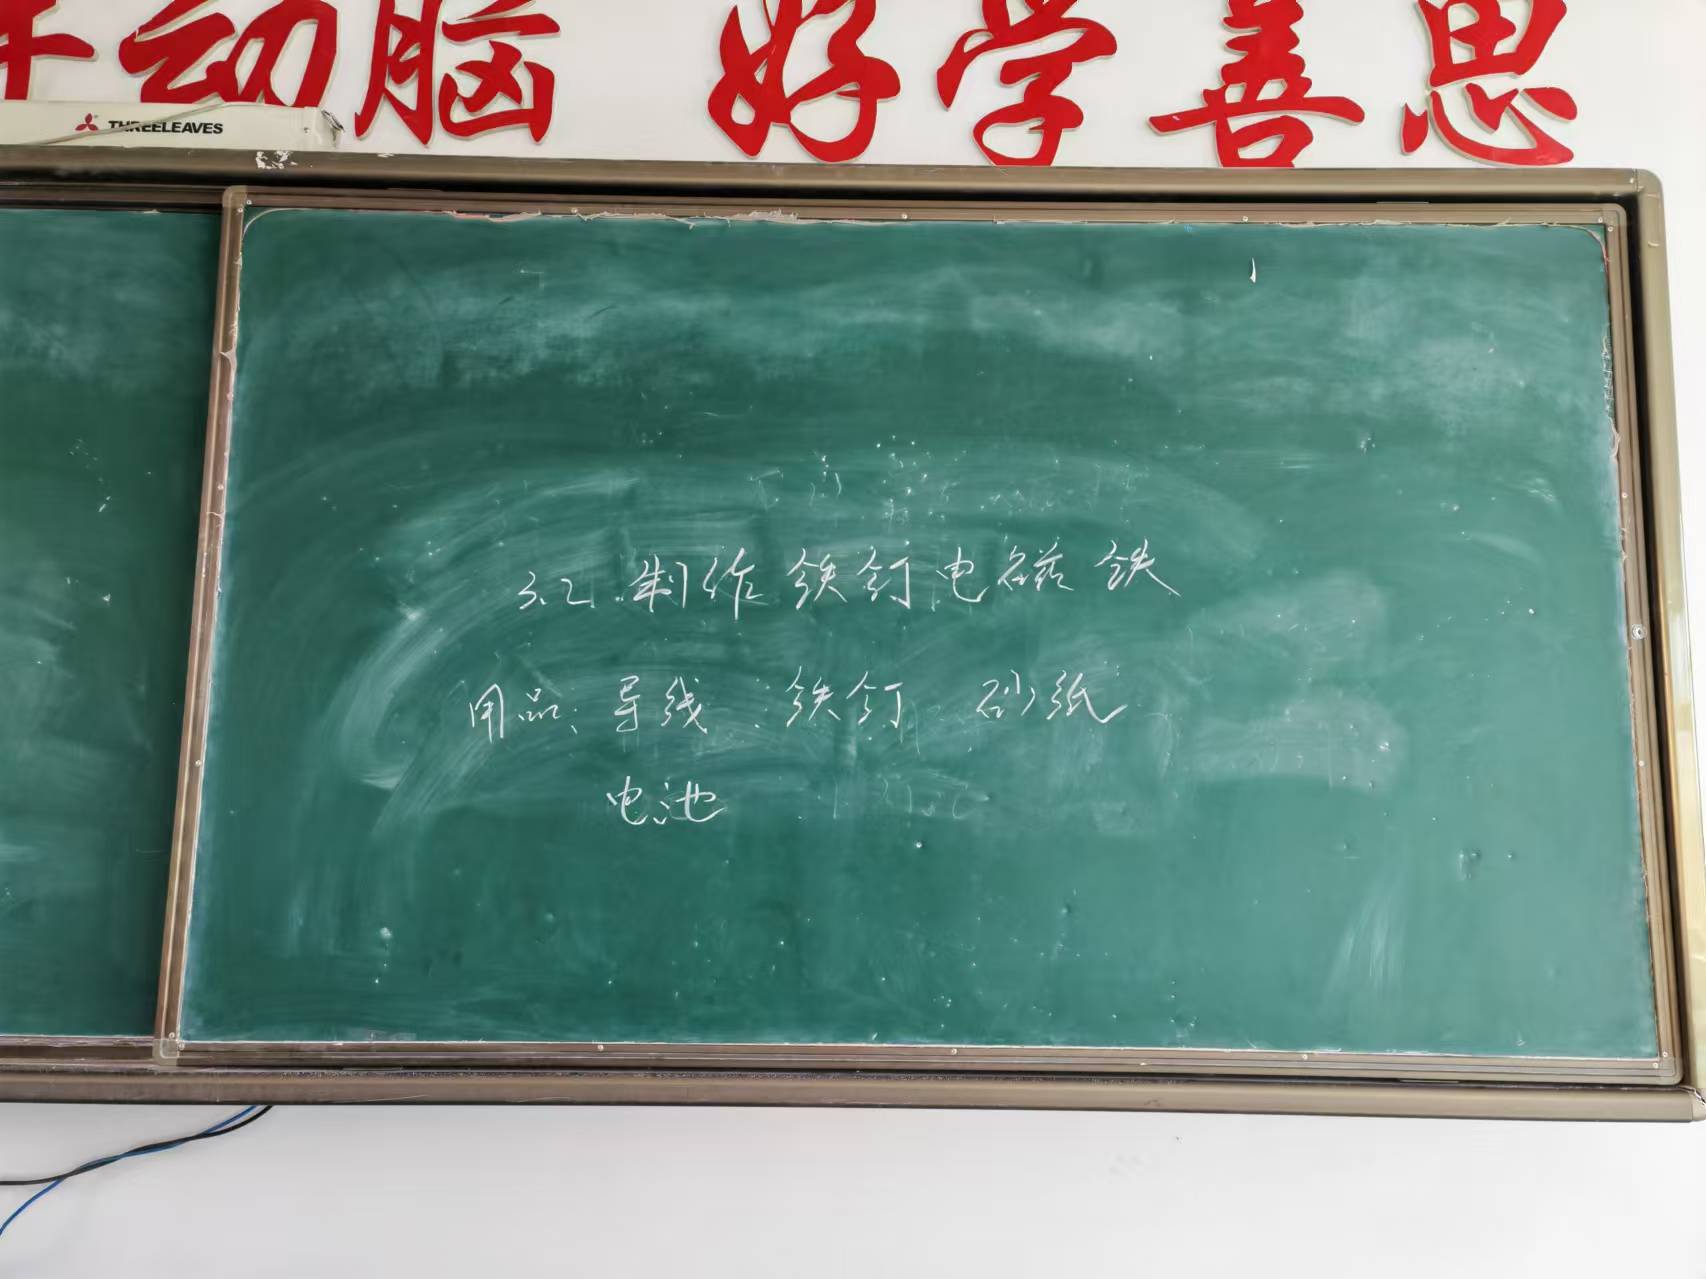 动脑 好学善思
THREELEAVES
3.2 制作铁钉电磁铁
用品: 导线 铁钉 砂纸
电池